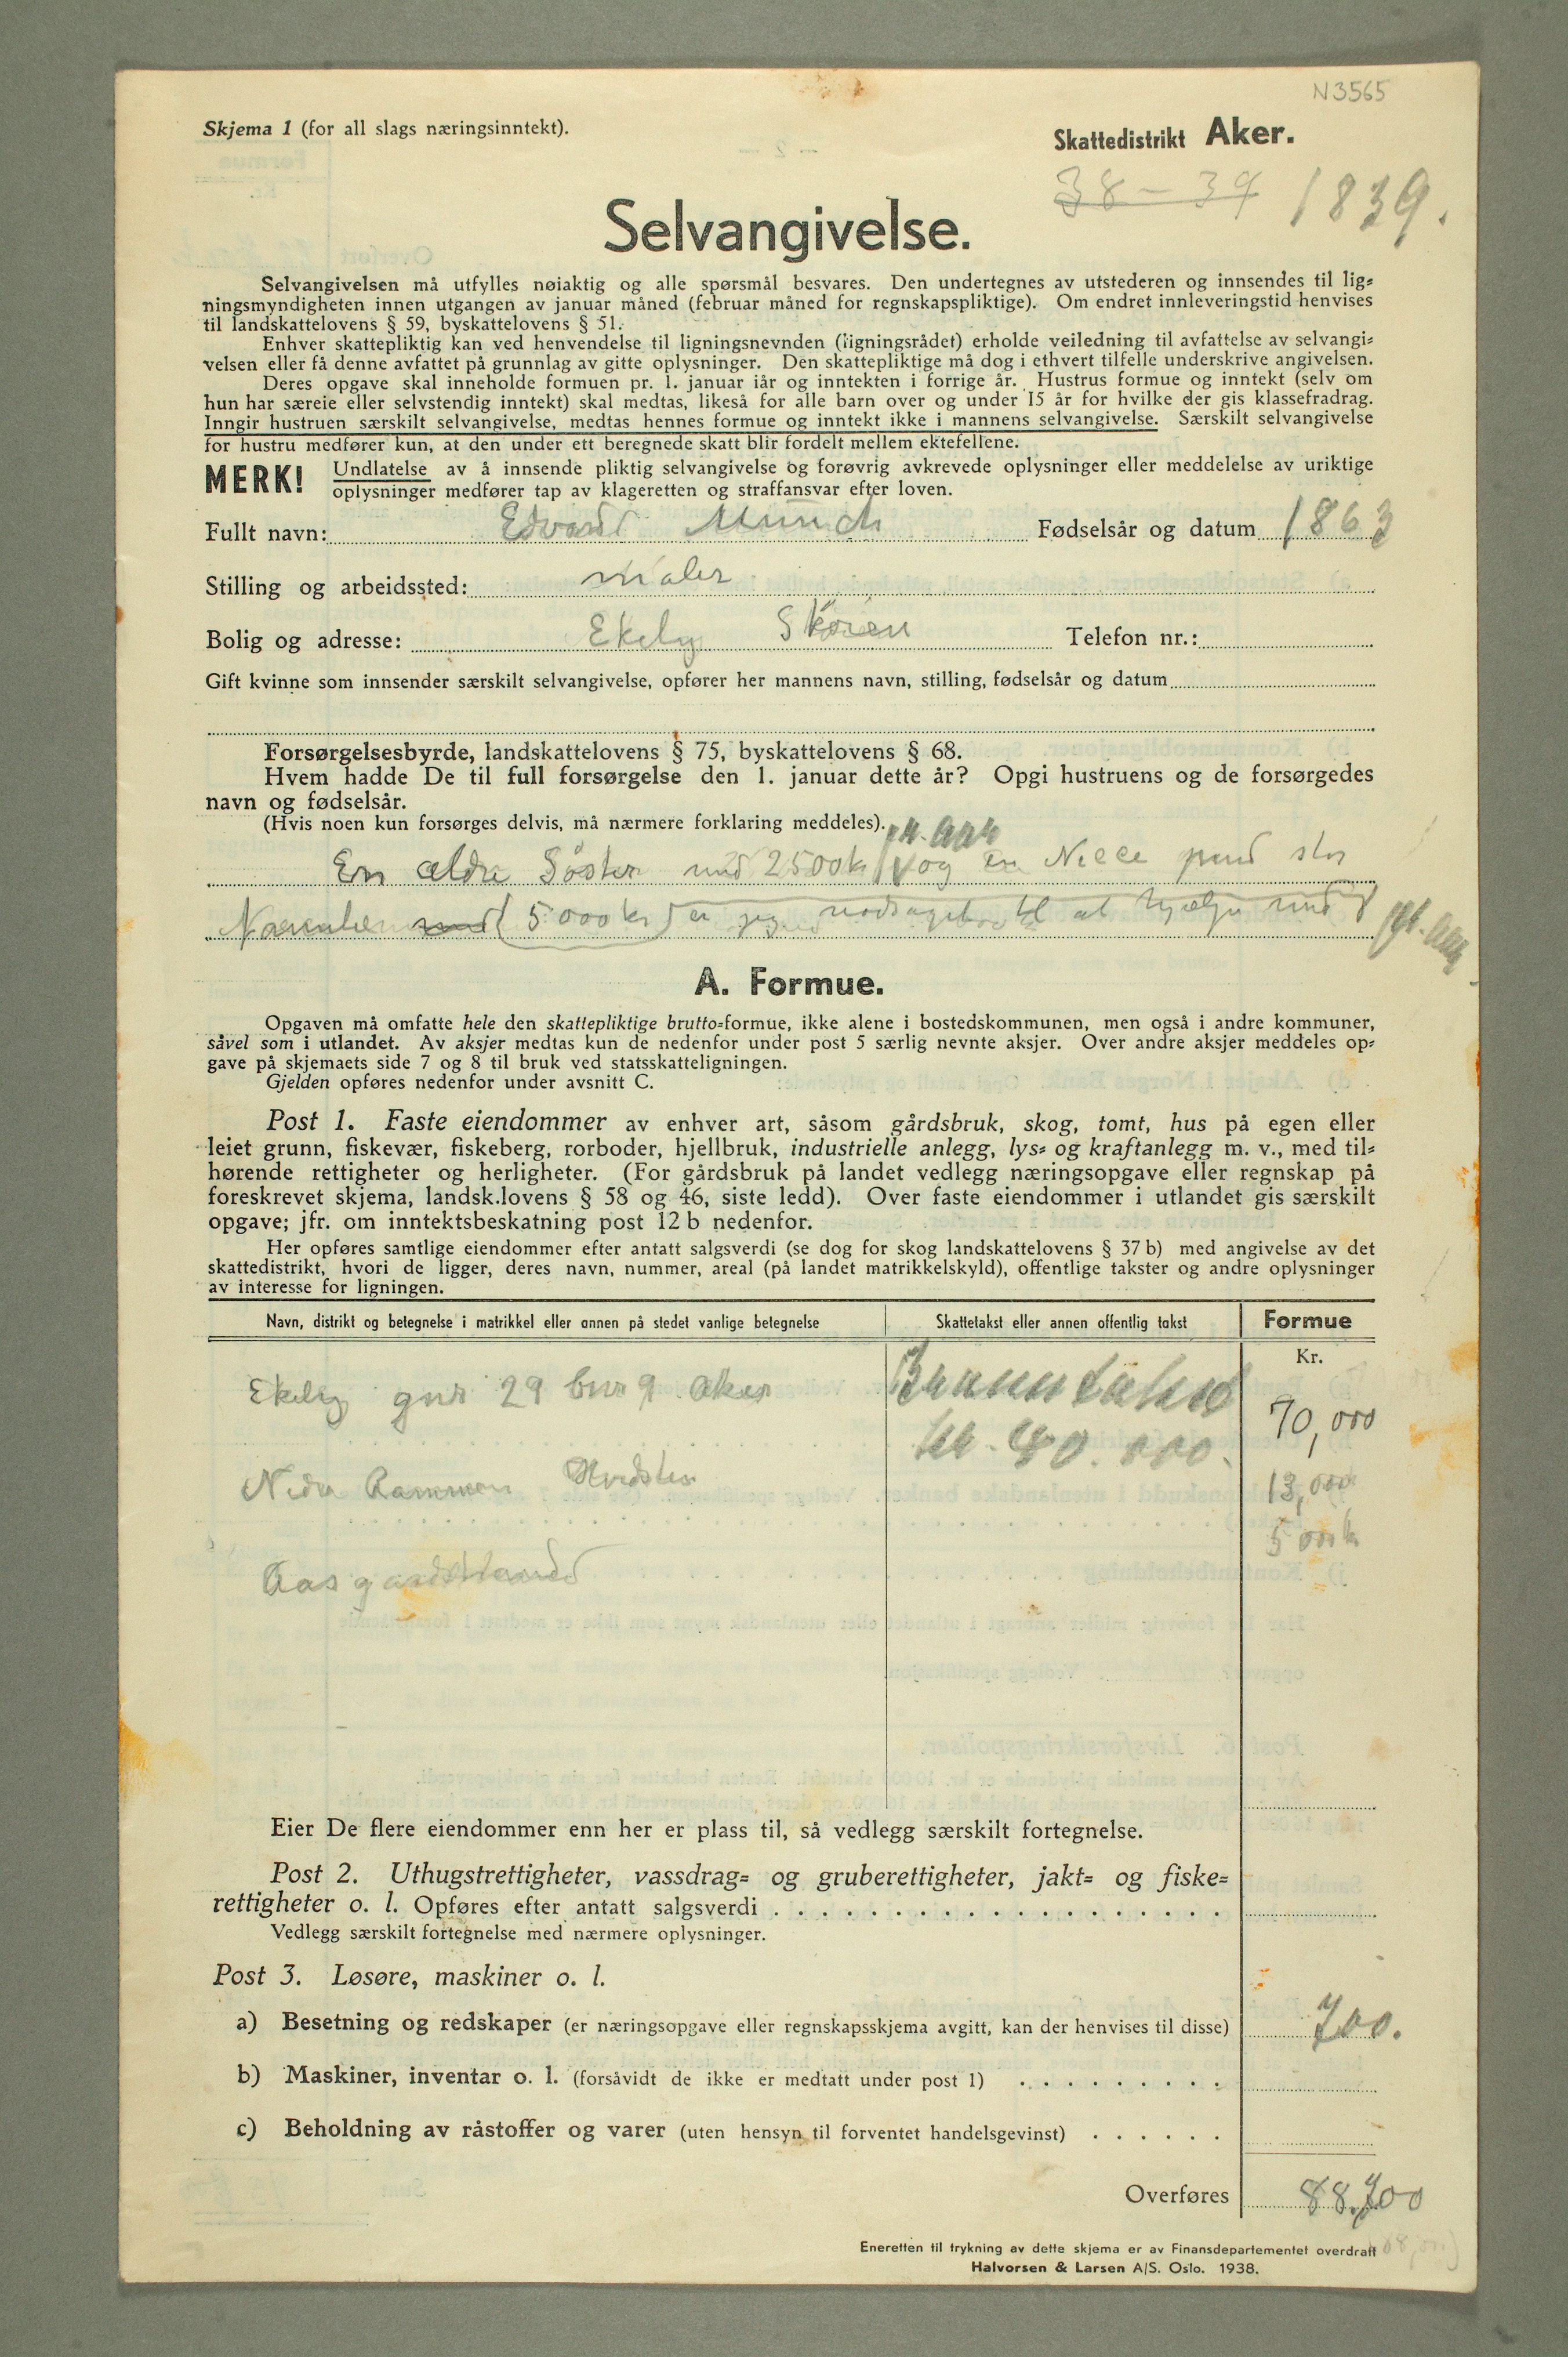 N 3565
Skjema 1 (for all slags næringsinntekt).
Skattedistrikt Aker.
38 – 39 1839.
Selvangivelse.
Selvangivelsen må utfylles nøiaktig og alle spørsmål besvares. Den undertegnes av utstederen og innsendes til lig=
ningsmyndigheten innen utgangen av januar måned (februar måned for regnskapspliktige). Om endret innleveringstid henvises
til landskattelovens § 59, byskattelovens § 51.
Enhver skattepliktig kan ved henvendelse til ligningsnevnden (ligningsrådet) erholde veiledning til avfattelse av selvangi=
velsen eller få denne avfattet på grunnlag av gitte oplysninger. Den skattepliktige må dog i ethvert tilfelle underskrive angivelsen.
Deres opgave skal inneholde formuen pr. 1. januar iår og inntekten i forrige år. Hustrus formue og inntekt (selv om
hun har særeie eller selvstendig inntekt) skal medtas, likeså for alle barn over og under 15 år for hvilke der gis klassefradrag.
Inngir hustruen særskilt selvangivelse, medtas hennes formue og inntekt ikke i mannens selvangivelse. Særskilt selvangivelse
for hustru medfører kun, at den under ett beregnede skatt blir fordelt mellem ektefellene.
MERK! Undlatelse av å innsende pliktig selvangivelse og forøvrig avkrevede oplysninger eller meddelelse av uriktige
oplysninger medfører tap av klageretten og straffansvar efter loven.
Fullt navn: Edvard Munch Fødselsår og datum 1863
Stilling og arbeidssted: maler
Bolig og adresse: Ekely Skøien Telefon nr.:
Gift kvinne som innsender særskilt selvangivelse, opfører her mannens navn, stilling, fødselsår og datum
Forsørgelsesbyrde, landskattelovens § 75, byskattelovens § 68.
Hvem hadde De til full forsørgelse den 1. januar dette år? Opgi hustruens og de forsørgedes
navn og fødselsår.
(Hvis noen kun forsørges delvis, må nærmere forklaring meddeles).
pr. aar
En ældre Søster med 2500 kr og en Niece med stor
(5000 kr) er jeg nødsaget til at hjælpe med pr. aar
A. Formue.
Opgaven må omfatte hele den skattepliktige brutto=formue, ikke alene i bostedskommunen, men også i andre kommuner,
såvel som i utlandet. Av aksjer medtas kun de nedenfor under post 5 særlig nevnte aksjer. Over andre aksjer meddeles op=
gave på skjemaets side 7 og 8 til bruk ved statsskatteligningen.
Gjelden opføres nedenfor under avsnitt C.
Post 1. Faste eiendommer av enhver art, såsom gårdsbruk, skog, tomt, hus på egen eller
leiet grunn, fiskevær, fiskeberg, rorboder, hjellbruk, industrielle anlegg, lys= og kraftanlegg m. v., med til=
hørende rettigheter og herligheter. (For gårdsbruk på landet vedlegg næringsopgave eller regnskap på
foreskrevet skjema, landsk.lovens § 58 og 46, siste ledd). Over faste eiendommer i utlandet gis særskilt
opgave; jfr. om inntektsbeskatning post 12 b nedenfor.
Her opføres samtlige eiendommer efter antatt salgsverdi (se dog for skog landskattelovens § 37 b) med angivelse av det
skattedistrikt, hvori de ligger, deres navn, nummer, areal (på landet matrikkelskyld), offentlige takster og andre oplysninger
av interesse for ligningen.
Navn, distrikt og betegnelse i matrikkel eller annen på stedet vanlige betegnelse Skattetakst eller annen offentlig takst Formue
Kr.
Ekely gnr 29 bnr 9 Aker Branntakst 70,000
kr. 40.000.
Nedre Rammen Hvidsten 13,000
5000 kr
Aasgaardstrand
Eier De flere eiendommer enn her er plass til, så vedlegg særskilt fortegnelse.
Post 2. Uthugstrettigheter, vassdrag= og gruberettigheter, jakt= og fiske=
rettigheter o. l. Opføres efter antatt salgsverdi . . . . . . . . . . . . . . . . . .
Vedlegg særskilt fortegnelse med nærmere oplysninger.
Post 3. Løsøre, maskiner o. l.
a) Besetning og redskaper (er næringsopgave eller regnskapsskjema avgitt, kan der henvises til disse) 700.
b) Maskiner, inventar o. l. (forsåvidt de ikke er medtatt under post 1) . . . . . . . . .
c) Beholdning av råstoffer og varer (uten hensyn til forventet handelsgevinst) . . . . . .
Overføres 88.700
Eneretten til trykning av dette skjema er av Finansdepartementet overdratt
Halvorsen & Larsen A/S. Oslo. 1938.